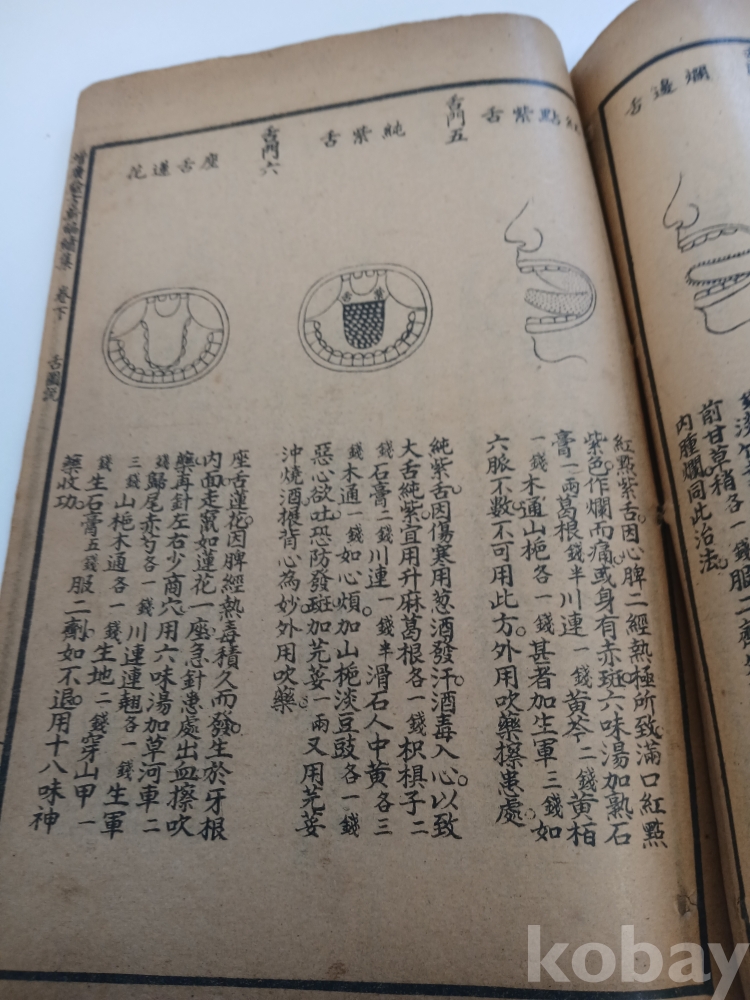 爛邊舌
前甘草稍各一錢服二劑
內腫爛同此治法
紅點紫舌
舌門五
純紫舌
舌門六
座舌蓮花
舌紫
紅點紫舌因心脾二經熱極所致滿口紅點
紫色作爛而痛或身有赤斑六味湯加熟石
膏一兩葛根錢半川連一錢黃芩二錢黃栢
一錢木通山梔各一錢甚者加生軍三錢如
六脈不數不可用此方外用吹藥擦患處
純紫舌因傷寒用葱酒發汗酒毒入心以致
大舌純紫宜用升麻葛根各一錢枳椇子二
錢石膏二錢川連一錢半滑石人中黃各三
錢木通一錢如心煩加山梔淡豆豉各一錢
惡心欲吐恐防發斑加芫荽一兩又用芫荽
沖燒酒搌背心為妙外用吹藥
座舌蓮花因脾經熱毒積久而發生於牙根
內面走氣如蓮花一座急針患處出血擦吹
藥再針左右少商穴用六味湯加草河車二
錢歸尾赤芍各一錢川連連翹各一錢生軍
三錢山梔木通各一錢生地二錢穿山甲一
錢生石膏五錢服二劑如不退用十八味神
藥收功
卷下
舌圖説
kobay